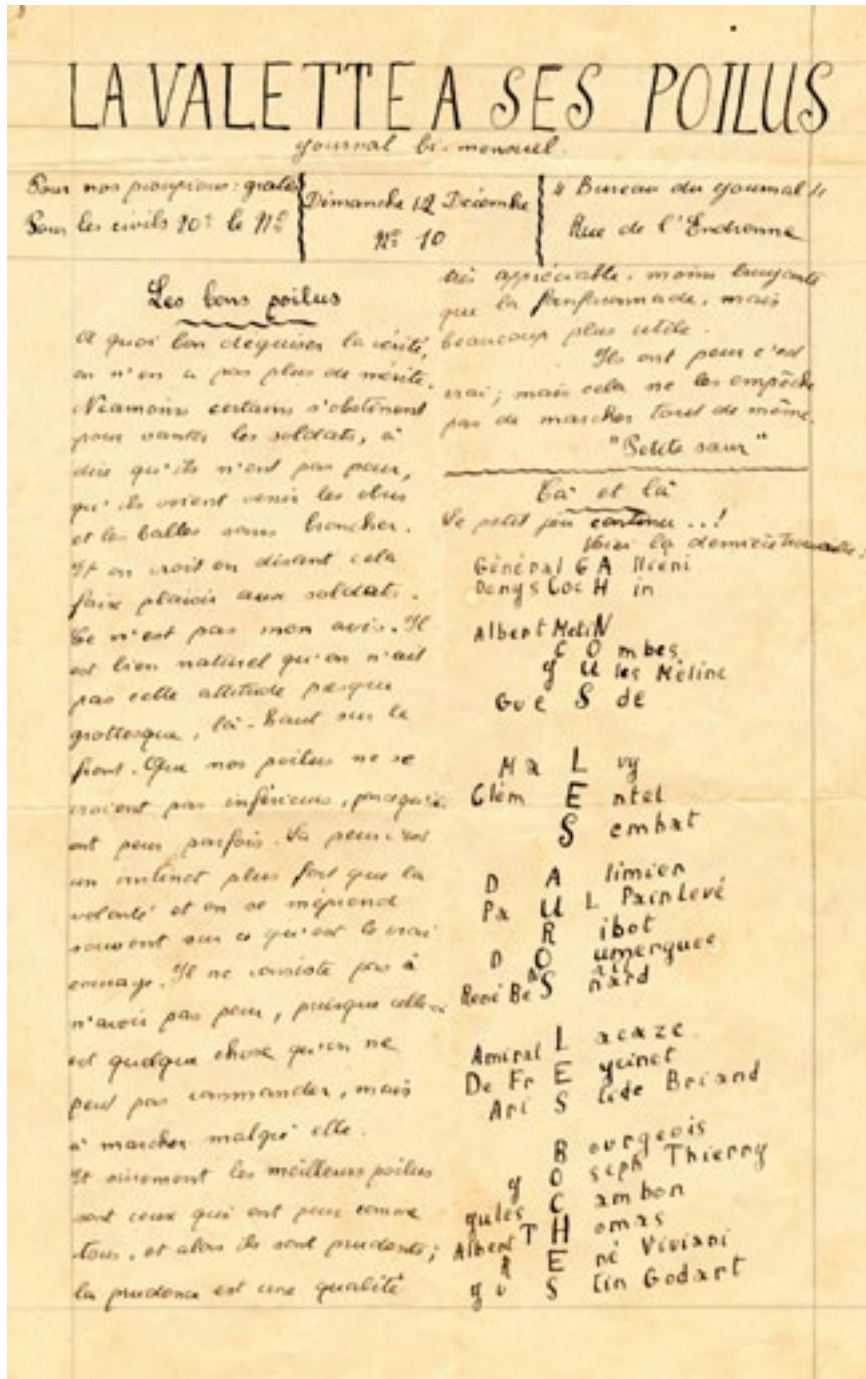 LA VALETTE A SES POILUS
Journal bi-mensuel.
Pour nos pioupious: gratis
Pour les civils 10c le No
Dimanche 12 Décembre
No 10
"Bureau du Journal"
Rue de l'Endronne
Les bons poilus
A quoi bon déguiser la vérité,
on n'en a pas plus de mérite.
Néamoins certains s'obstinent
pour vanter les soldats, à
dire qu'ils n'ont pas peur,
qu'ils voient venir les obus
et les balles sans broncher.
Et on croit en disant cela
faire plaisir aux soldats.
Ce n'est pas mon avis. Il
est bien naturel qu'on n'ait
pas cette attitude presque
grottesque, là-haut sur le
front. Que nos poilus ne se
croient pas inférieurs, parcequ'ils
ont peur parfois. La peur c'est
un instinct plus fort que la
volonté et on se méprend
souvent sur ce qu'est le vrai
courage. Il ne consiste pas à
n'avoir pas peur, puisque celle-ci
est quelque chose qu'on ne
peut pas commander, mais
à marcher malgré elle.
Et surement les meilleurs poilus
sont ceux qui ont peur comme
tous, et alors ils sont prudents;
la prudence est une qualité
très appréciable, moins bruyante
que la fanfaronnade, mais
beaucoup plus utile.
Ils ont peur c'est
vrai; mais cela ne les empêche
pas de marcher tout de même.
"Petite sœur"
Cà et là
Le petit jeu continue..!
Voici la dernière trouvaille:
Général GAllieni
Denys CocHin
Albert MetiN
COmbes
JUles Méline
GueSde
MaLvy
ClémEntel
Sembat
DAlimier
PaUL Painlevé
Ribot
DOumergue
René BeSnard
Amiral Lacaze
De FrEycinet
AriStide Briand
Bourgeois
JOseph Thierry
Jules Cambon
Albert THomas
REné Viviani
JuStin Godart